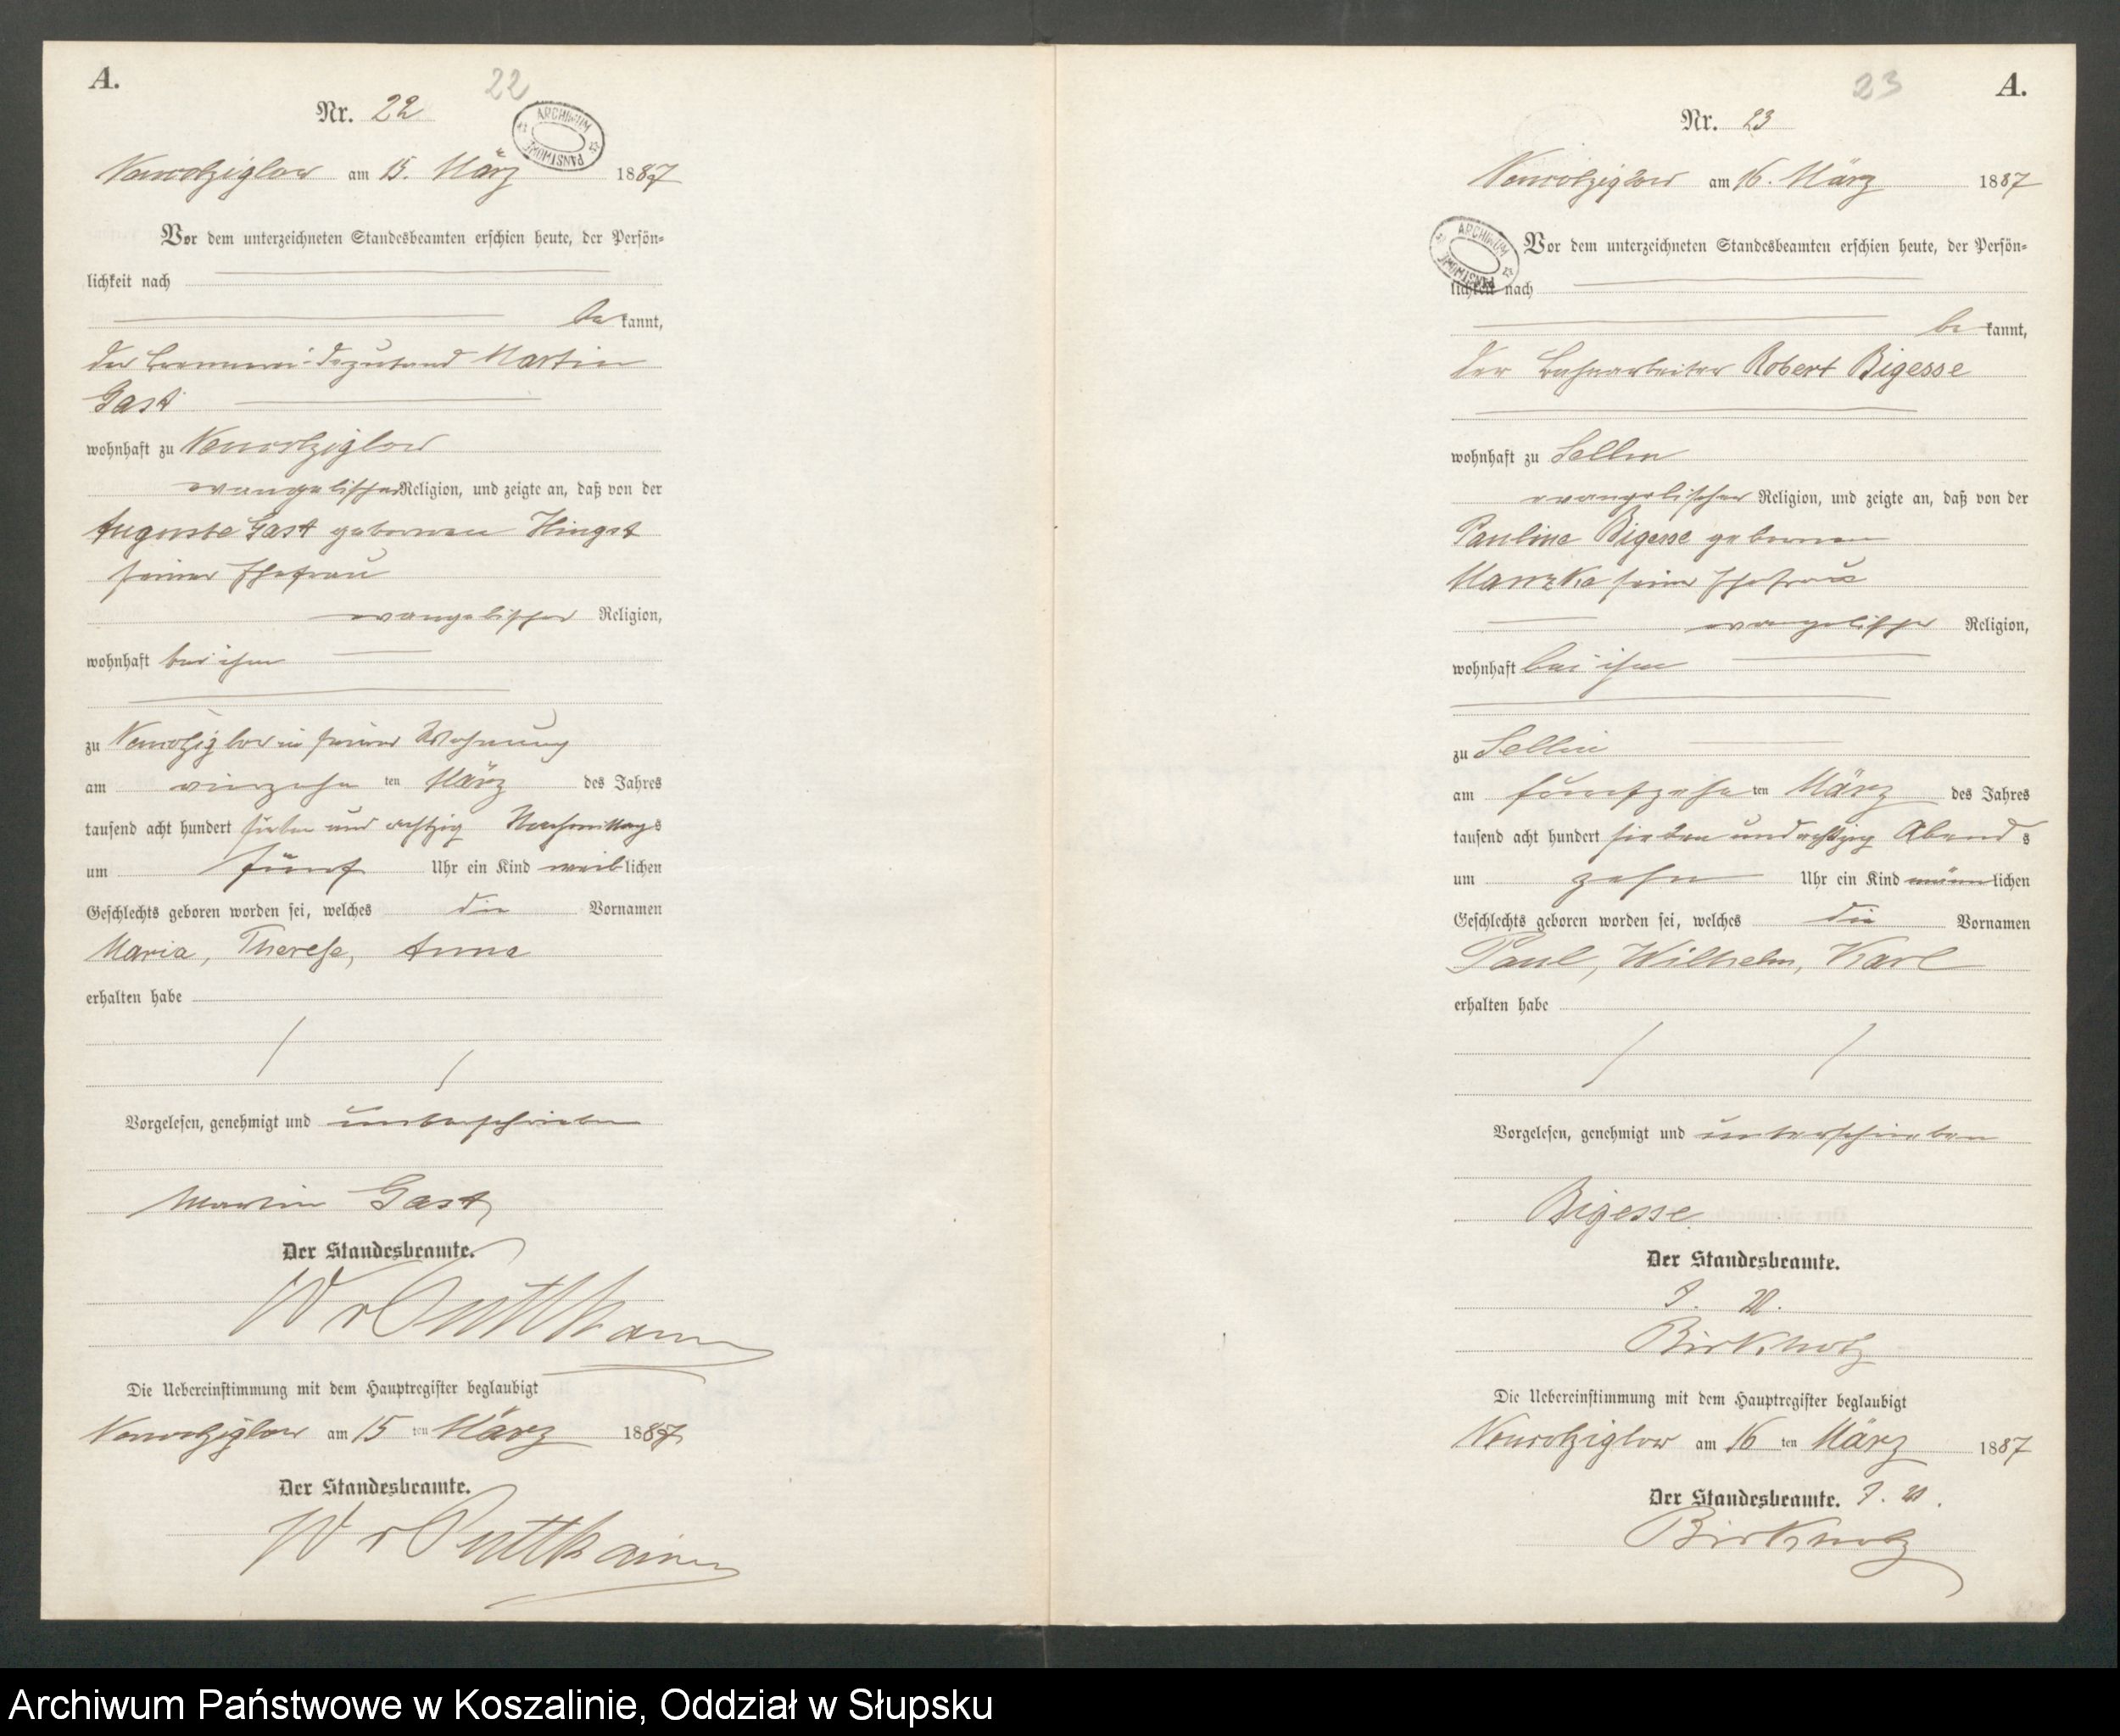 A.
22
Nr. 22
ARCHIWUM PAŃSTWOWE
am 15. März 1887
Vor dem unterzeichneten Standesbeamten erschien heute, der Persön-
lichkeit nach
bekannt,
der Martin
Gast
wohnhaft zu
evangelischer Religion, und zeigte an, daß von der
Auguste Gast geborenen Hingst
seiner Ehefrau
evangelischer Religion,
wohnhaft bei ihm
zu in seiner Wohnung
am vierzehn ten März des Jahres
tausend acht hundert sieben und achtzig Nachmittags
um fünf Uhr ein Kind weiblichen
Geschlechts geboren worden sei, welches die Vornamen
Maria, Therese, Anna
erhalten habe
Vorgelesen, genehmigt und unterschrieben
Martin Gast
Der Standesbeamte.
W v Puttkamer
Die Uebereinstimmung mit dem Hauptregister beglaubigt
am 15 ten März 1887
Der Standesbeamte.
W v Puttkamer
23
A.
Nr. 23
am 16. März 1887
ARCHIWUM PAŃSTWOWE
Vor dem unterzeichneten Standesbeamten erschien heute, der Persön-
lichkeit nach
bekannt,
der Bahnarbeiter Robert Bigesse
wohnhaft zu Sellin
evangelischer Religion, und zeigte an, daß von der
Pauline Bigesse geborenen
Manzke seiner Ehefrau
evangelischer Religion,
wohnhaft bei ihm
zu Sellin
am fünfzehn ten März des Jahres
tausend acht hundert sieben und achtzig Abends
um zehn Uhr ein Kind männlichen
Geschlechts geboren worden sei, welches die Vornamen
Paul, Wilhelm, Karl
erhalten habe
Vorgelesen, genehmigt und unterschrieben
Bigesse
Der Standesbeamte.
J. V.
Birkholz
Die Uebereinstimmung mit dem Hauptregister beglaubigt
am 16 ten März 1887
Der Standesbeamte. J. V.
Birkholz
Archiwum Państwowe w Koszalinie, Oddział w Słupsku